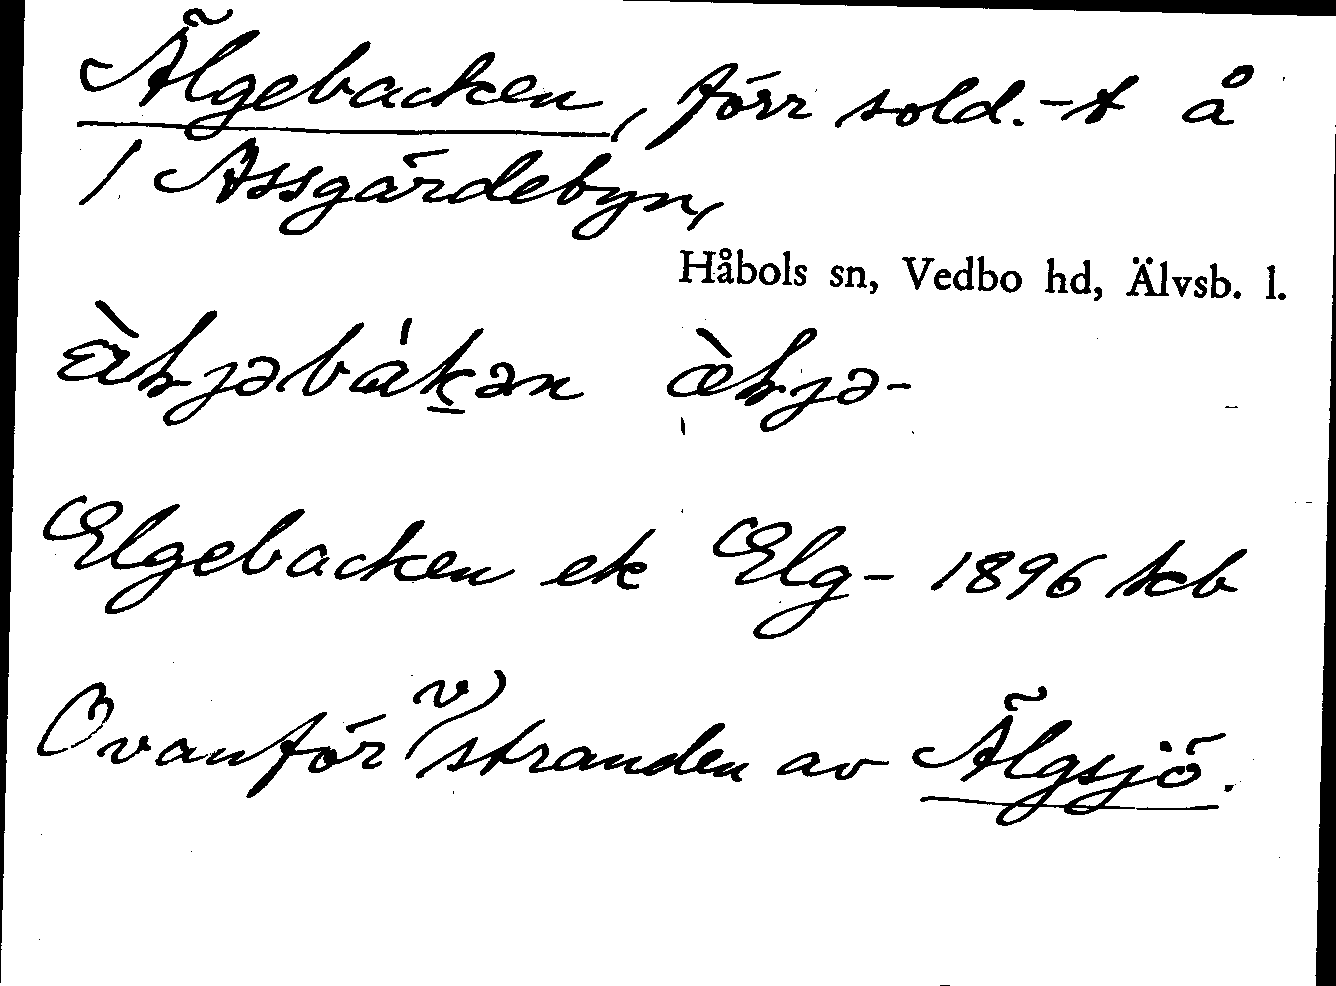 Älgebacken, förr sold.-t å
1 Assgärdebyn,
Håbols sn, Vedbo hd, Älvsb. l.
Elgebacken ek Elg- 1896 kb
Ovanför (v) stranden av Älgsjö.